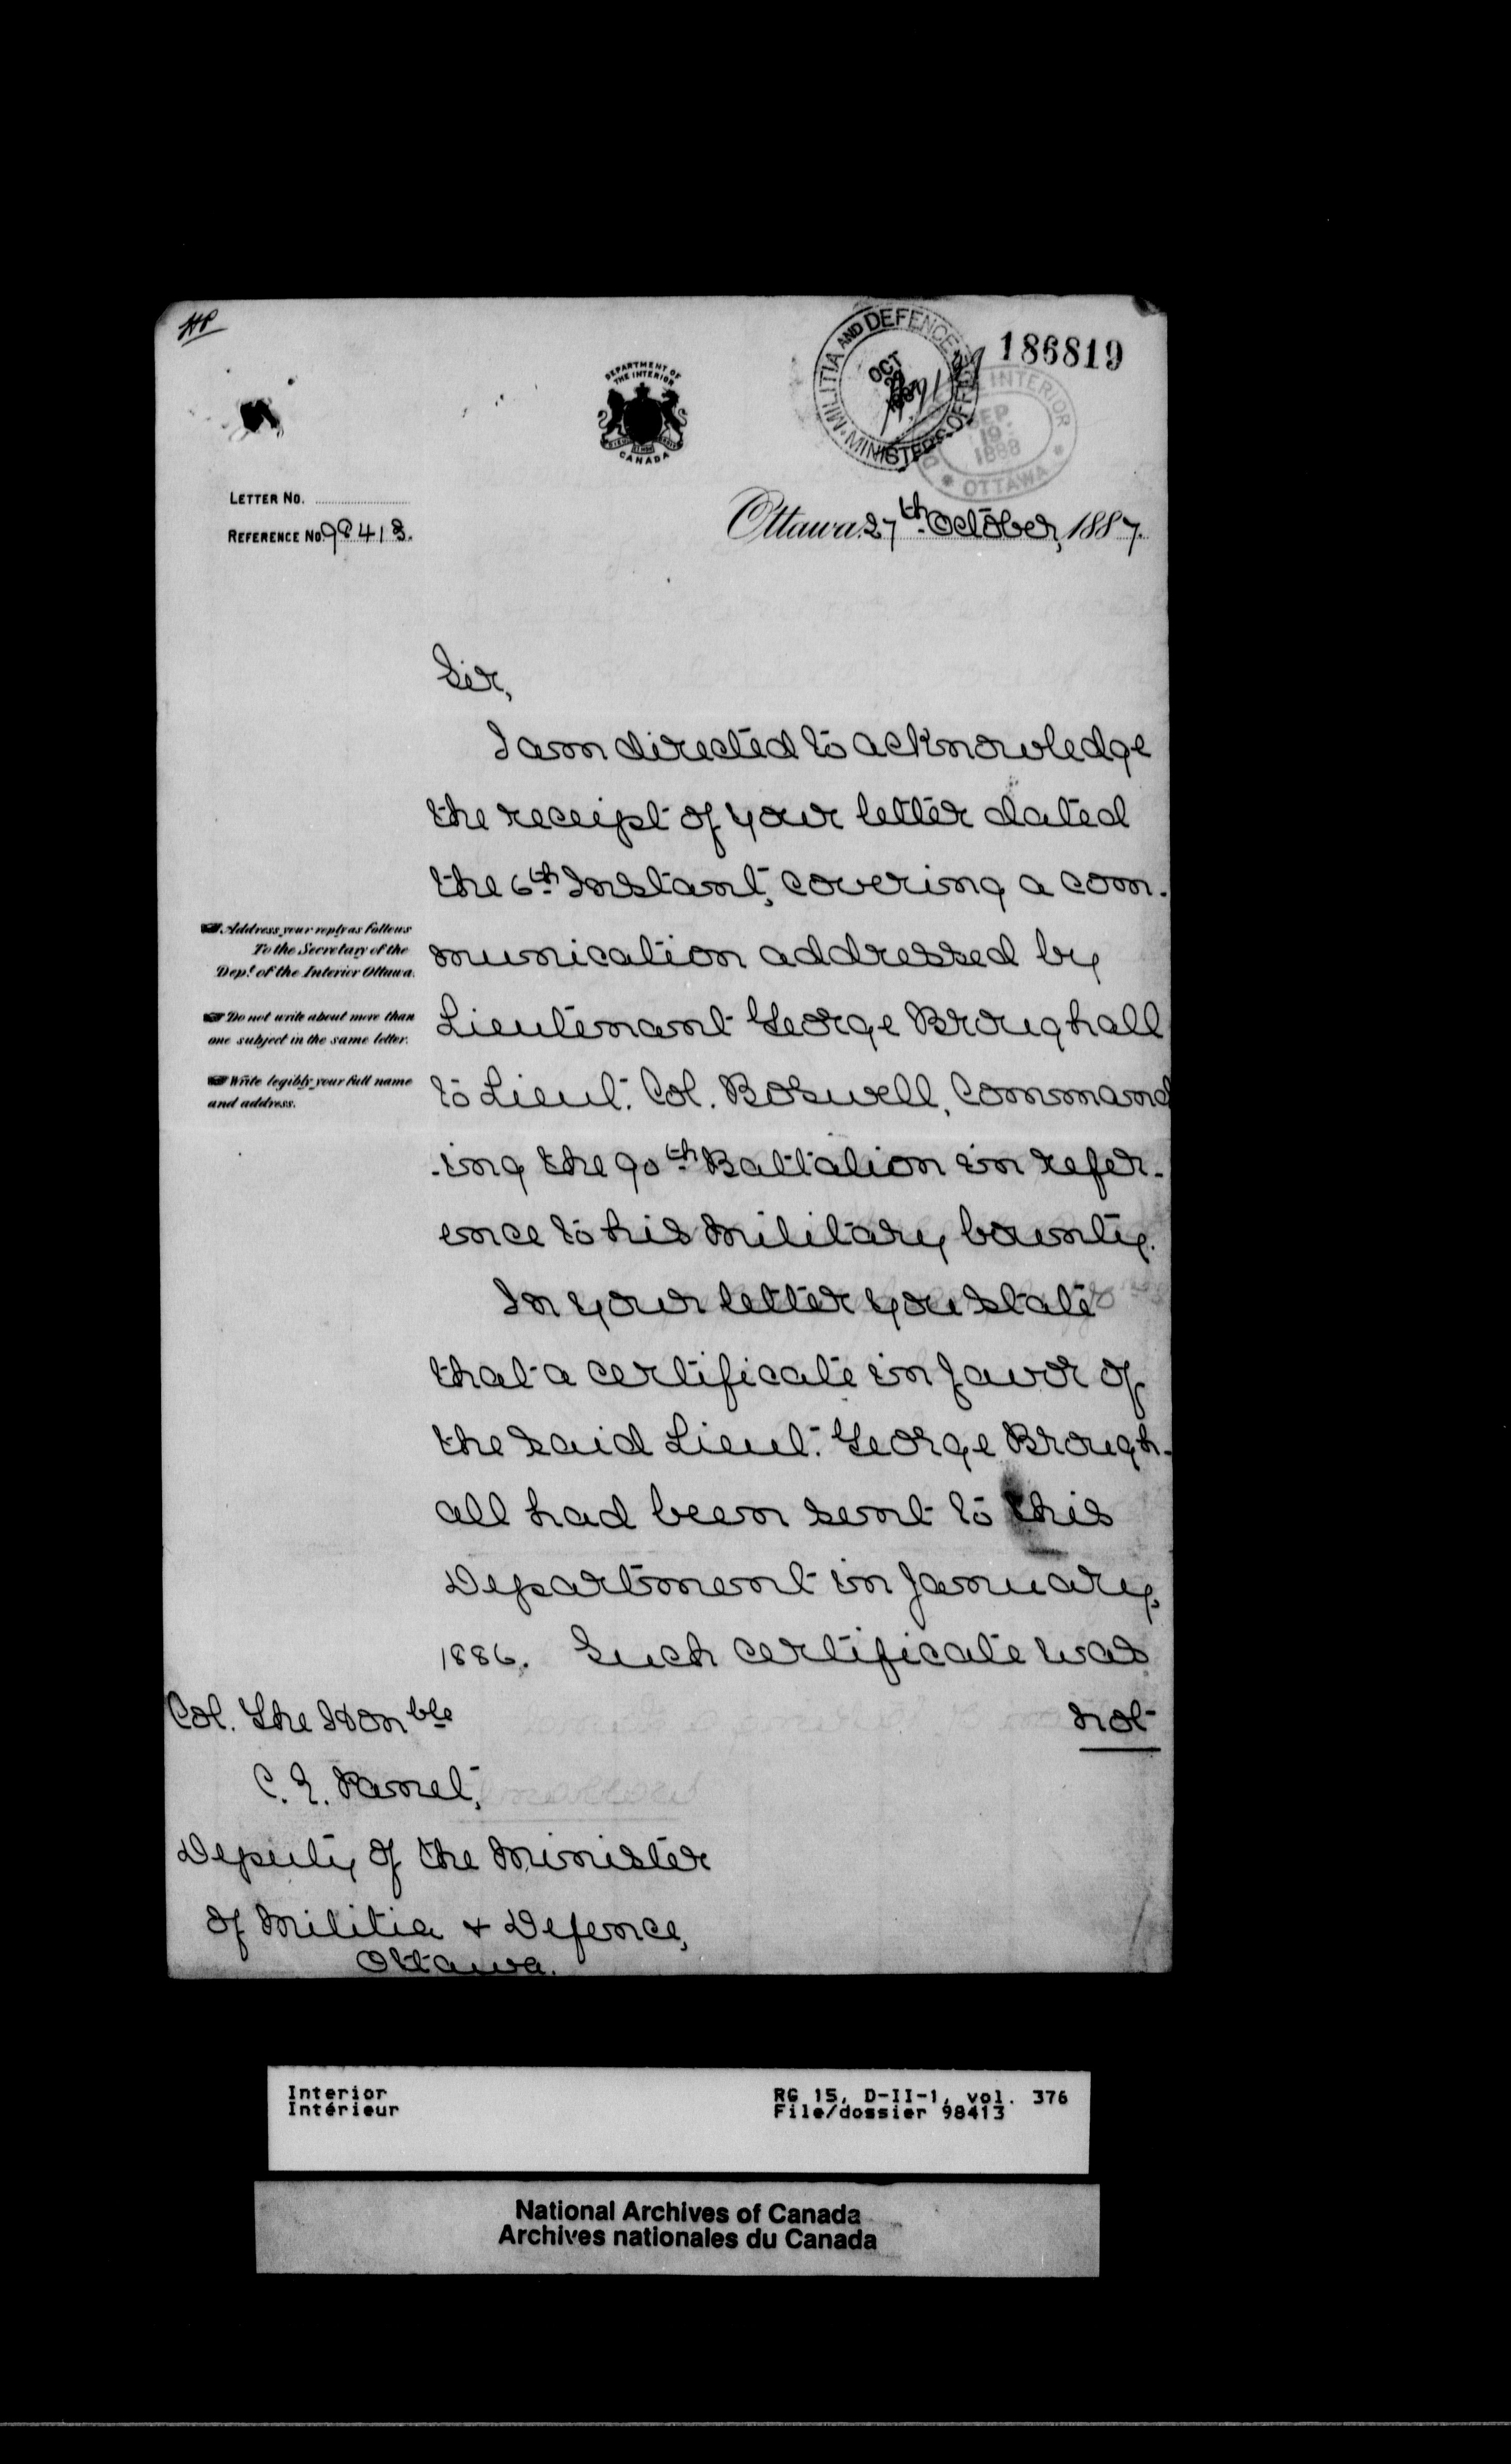 HP
DEPARTMENT OF
THE INTERIOR
CANADA
MILITIA AND DEFENCE
MINISTER'S OFFICE
OCT
1887
186819
INTERIOR
SEP.
19
1888
OTTAWA
LETTER NO.
REFERENCE NO 98413.
Ottawa. 27th October, 1887.
Sir,
I am directed to acknowledge
the receipt of your letter dated
the 6th Instant, covering a com-
munication addressed by
Lieutenant George Broughall
to Lieut. Col. Boswell, Command
-ing the 90th Battalion in refer-
ence to his Military bounty.
In your letter you state
that a certificate in favor of
the said Lieut. George Brough-
all had been sent to this
Department in January,
1886. Such certificate was
not
Address your reply as follows
To the Secretary of the
Dept. of the Interior Ottawa.
Do not write about more than
one subject in the same letter.
Write legibly your full name
and address.
Col. The Honble
C. E. Panet,
Deputy of the Minister
of Militia & Defence,
Ottawa.
Interior
Intérieur
RG 15, D-II-1, vol. 376
File/dossier 98413
National Archives of Canada
Archives nationales du Canada